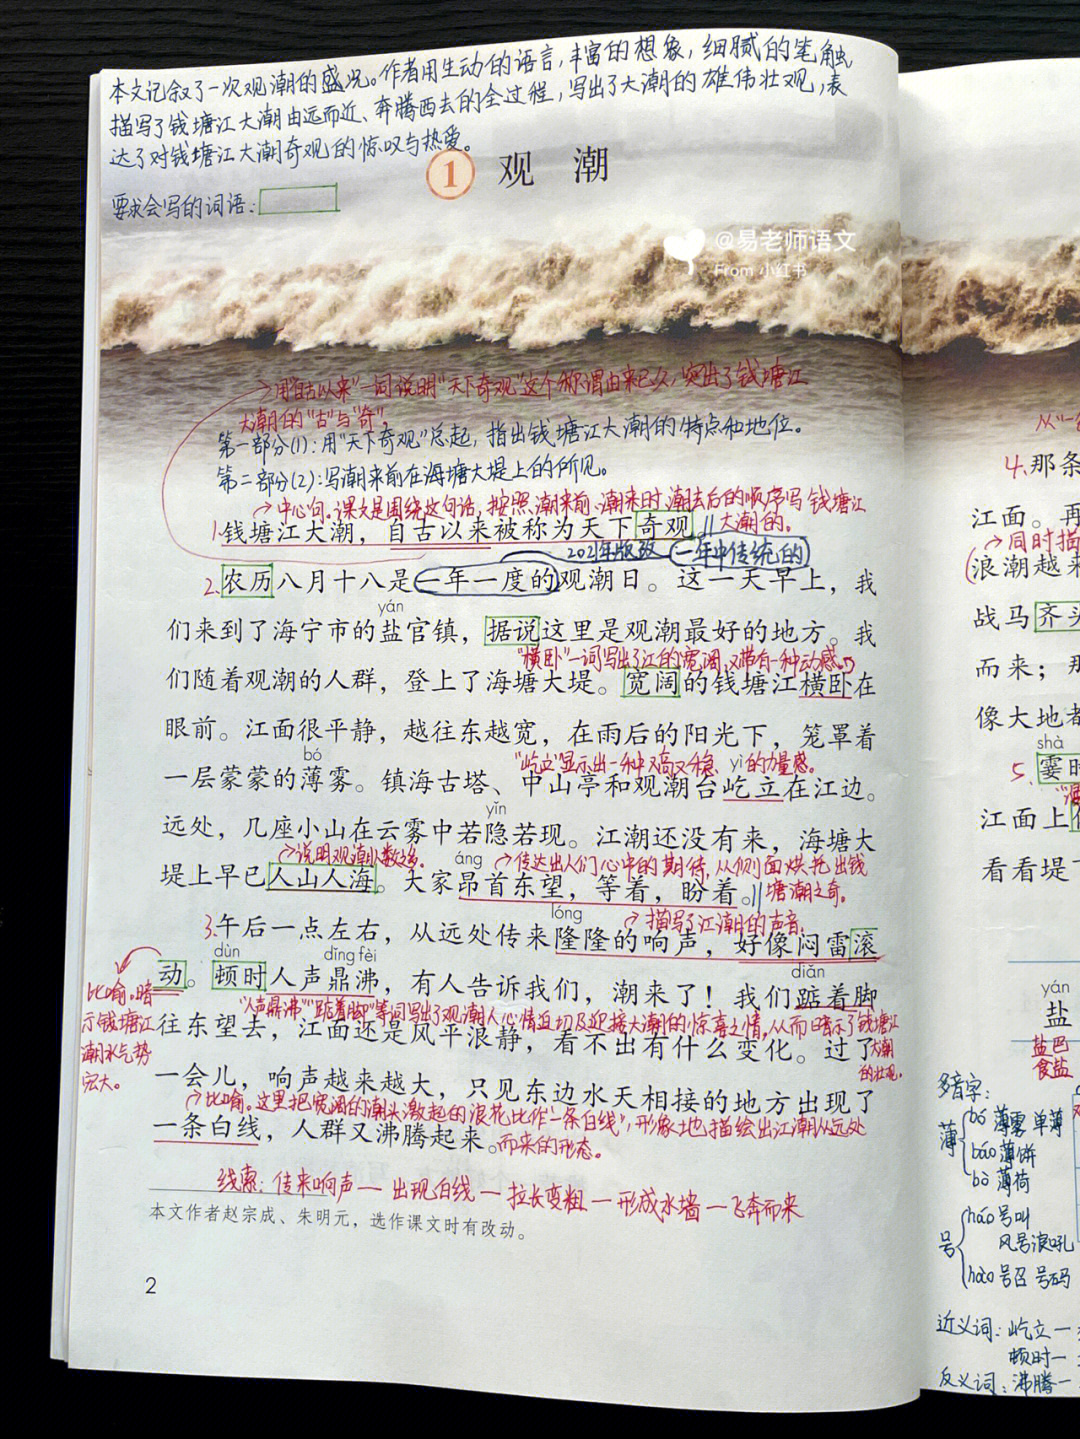 本文记叙了一次观潮的盛况。作者用生动的语言,丰富的想象,细腻的笔触
描写了钱塘江大潮由远而近、奔腾西去的全过程,写出了大潮的雄伟壮观,表
达了对钱塘江大潮奇观的惊叹与热爱。
1 观 潮
要求会写的词语:
@易老师语文
From 小红书
→用"自古以来"一词说明"天下奇观"这个称谓由来已久,突出了钱塘江
大潮的"古"与"奇"。
第一部分(1):用"天下奇观"总起,指出钱塘江大潮的特点和地位。
第二部分(2):写潮来前在海塘大堤上的所见。
→中心句。课文是围绕这句话,按照潮来前、潮来时、潮去后的顺序写钱塘江
大潮的。
1.钱塘江大潮,自古以来被称为天下奇观。
2021年版改 一年中传统的
2.农历八月十八是一年一度的观潮日。这一天早上,我
yán
们来到了海宁市的盐官镇,据说这里是观潮最好的地方。我
"横卧"一词写出了江的宽阔,又带有一种动感。
们随着观潮的人群,登上了海塘大堤。宽阔的钱塘江横卧在
眼前。江面很平静,越往东越宽,在雨后的阳光下,笼罩着
bó
"屹立"显示出一种又高又稳 yì 的力量感。
一层蒙蒙的薄雾。镇海古塔、中山亭和观潮台屹立在江边。
yǐn
远处,几座小山在云雾中若隐若现。江潮还没有来,海塘大
→说明观潮人数之多。
áng
→传达出人们心中的期待,从侧面烘托出钱
塘潮之奇。
堤上早已人山人海。大家昂首东望,等着,盼着。
lóng
→描写了江潮的声音。
3.午后一点左右,从远处传来隆隆的响声,好像闷雷滚
dùn dǐng fèi diǎn
动。顿时人声鼎沸,有人告诉我们,潮来了!我们踮着脚
比喻。暗
示钱塘江
潮水气势
宏大。
"人声鼎沸""踮着脚"等词写出了观潮人心情迫切及迎接大潮的惊喜之情,从而暗示了钱塘江
大潮
的壮观。
往东望去,江面还是风平浪静,看不出有什么变化。过了
一会儿,响声越来越大,只见东边水天相接的地方出现了
→比喻。这里把宽阔的潮头激起的浪花比作"一条白线",形象地描绘出江潮从远处
而来的形态。
一条白线,人群又沸腾起来。
线索:传来响声—出现白线—拉长变粗—形成水墙—飞奔而来
本文作者赵宗成、朱明元,选作课文时有改动。
2
4.那条
江面。再
→同时描
浪潮越来
战马齐头
而来;那
像大地都
shà
5.霎时
江面上
看看堤下
yán
盐
盐巴
食盐
多音字:
薄
bó 薄雾 单薄
báo 薄饼
bò 薄荷
号
háo 号叫
风号浪吼
hào 号召 号码
近义词:屹立—
顿时—
反义词:沸腾—